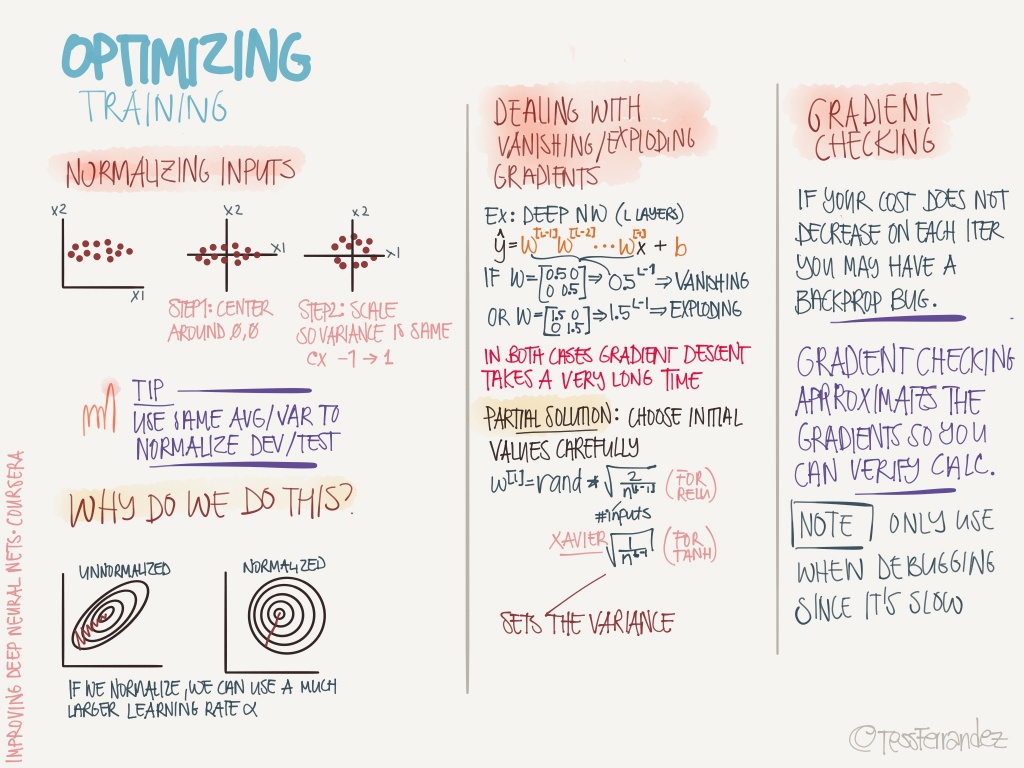 OPTIMIZING
TRAINING
NORMALIZING INPUTS
X2
X1
X2
X1
X2
X1
STEP1: CENTER
AROUND 0,0
STEP2: SCALE
SO VARIANCE IS SAME
EX -1 → 1
TIP
USE SAME AVG/VAR TO
NORMALIZE DEV/TEST
WHY DO WE DO THIS?
UNNORMALIZED
NORMALIZED
IF WE NORMALIZE, WE CAN USE A MUCH
LARGER LEARNING RATE α
DEALING WITH
VANISHING/EXPLODING
GRADIENTS
EX: DEEP NW (L LAYERS)
ŷ = W[L-1] W[L-2] ... W[1] x + b
IF W = [0.5 0 0 0.5] ⇒ 0.5^L-1 ⇒ VANISHING
OR W = [1.5 0 0 1.5] ⇒ 1.5^L-1 ⇒ EXPLODING
IN BOTH CASES GRADIENT DESCENT
TAKES A VERY LONG TIME
PARTIAL SOLUTION: CHOOSE INITIAL
VALUES CAREFULLY
W[l] = rand * √(2/n[l-1]) (FOR RELU)
#inputs
XAVIER √(1/n[l-1]) (FOR TANH)
SETS THE VARIANCE
GRADIENT
CHECKING
IF YOUR COST DOES NOT
DECREASE ON EACH ITER
YOU MAY HAVE A
BACKPROP BUG.
GRADIENT CHECKING
APPROXIMATES THE
GRADIENTS SO YOU
CAN VERIFY CALC.
NOTE ONLY USE
WHEN DEBUGGING
SINCE IT'S SLOW
IMPROVING DEEP NEURAL NETS · COURSERA
©TessFerrandez